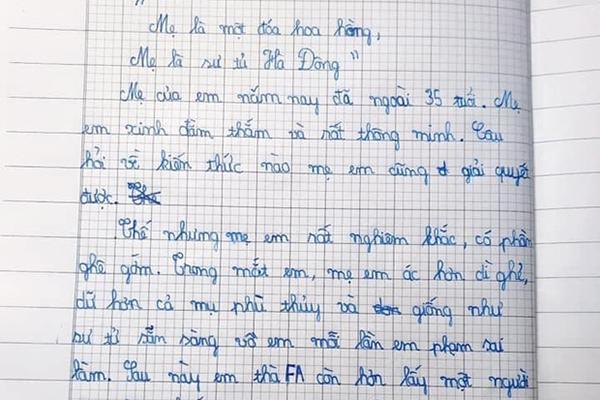 "
Mẹ là một đóa hoa hồng,
Mẹ là sư tử Hà Đông"
Mẹ của em năm nay đã ngoài 35 tuổi. Mẹ
em xinh đằm thắm và rất thông minh. Câu
hỏi về kiến thức nào mẹ em cũng giải quyết
được.
Thế nhưng mẹ em rất nghiêm khắc, có phần
ghê gớm. Trong mắt em, mẹ em ác hơn dì ghẻ,
dữ hơn cả mụ phù thủy và giống như
sư tử sẵn sàng vồ em mỗi lần em phạm sai
lầm. Sau này em thà FA còn hơn lấy một người